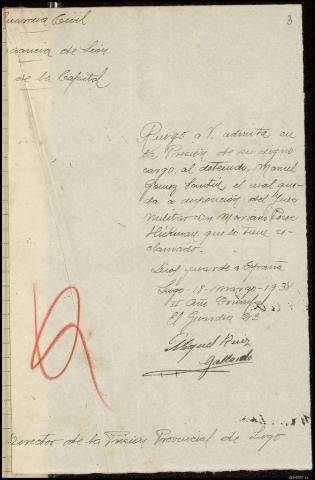 3
Guardia Civil
de la Capital
Ruego a V. admita en
la Prisión de su digno
cargo, al detenido, Manuel
Gomez el cual que-
da a disposición del Juez
Militar Don Mariano
que lo tiene re-
clamado.
Dios guarde a España
Lugo-18-marzo-1938
II Año Triunfal
El Guardia 2º
Miguel Ruiz
Gallardo
Director de la Prisión Provincial de Lugo